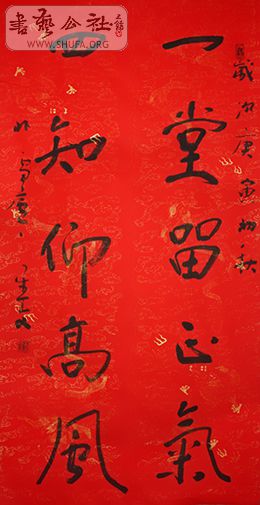 書藝公社
WWW.SHUFA.ORG
歲次庚寅初秋
一堂留正氣
四知仰高風